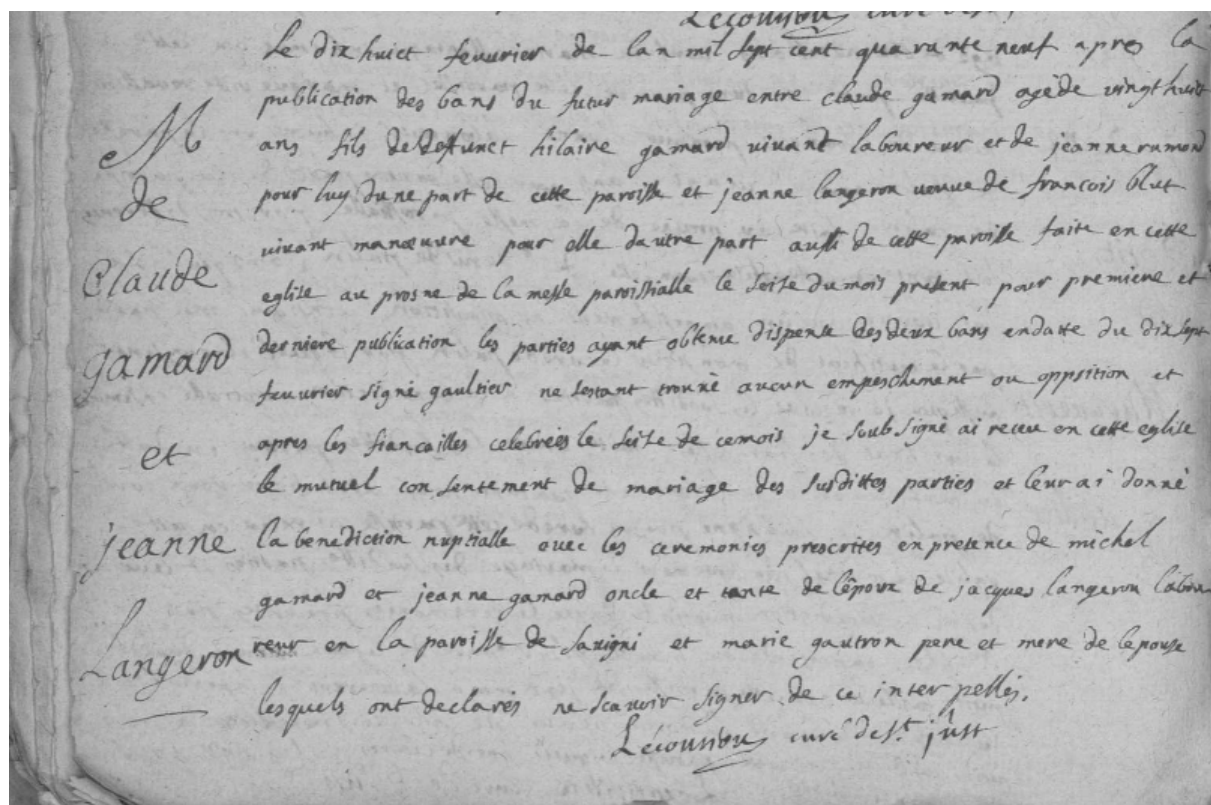 curé de st
Le dix huict feuurier de lan mil sept cent quarante neuf apres la
publication des bans du futur mariage entre claude gamard agé de vingt huit
M
ans fils de deffunct hilaire gamard vivant laboureur et de jeanne rumond
de
pour luy dune part de cette paroisse et jeanne langeron veuve de françois blut
vivant manœuvre pour elle dautre part aussi de cette paroisse faite en cette
Claude
eglise au prosne de la messe paroissialle le seize du mois present pour premiere et
gamard
derniere publication les parties ayant obtenu dispense des deux bans en datte du dix sept
feuurier signé gaultier ne sestant trouvé aucun empeschement ou oppsition et
et
apres les fiancailles celebrées le seize de ce mois je soubsigné ai receu en cette eglise
le mutuel consentement de mariage des susdittes parties et leur ai donné
jeanne
la benediction nuptialle avec les ceremonies prescrites en presence de michel
gamard et jeanne gamard oncle et tante de lépoux de jacques langeron labou
Langeron
reur en la paroisse de savigni et marie gautron pere et mere de lepouse
lesquels ont declarés ne scavoir signer de ce interpellés.
curé de st just